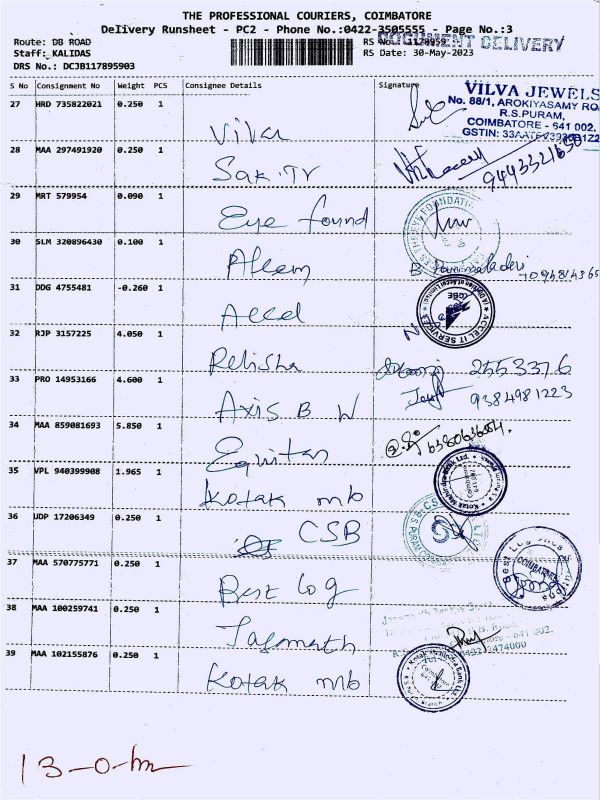 THE PROFESSIONAL COURIERS, COIMBATORE
Delivery Runsheet - PC2 - Phone No.:0422-3505555 - Page No.:3
Route: DB ROAD
RS No.: 1178959
DOCUMENT DELIVERY
Staff: KALIDAS
RS Date: 30-May-2023
DRS No.: DCJB117895903
S No Consignment No Weight PCS Consignee Details Signature
VILVA JEWELS
No. 88/1, AROKIYASAMY RO
R.S.PURAM,
COIMBATORE - 641 002.
27 HRD 735822021 0.250 1 Vilva
28 MAA 297491920 0.250 1 Sak. TV
29 MRT 579954 0.090 1 Eye found
30 SLM 320896430 0.100 1
31 DDG 4755481 -0.260 1 Accel
ACCEL IT SERVICES
32 RJP 3157225 4.050 1 Relisha 2553376
33 PRO 14953166 4.600 1 Axis B W 9384981223
34 MAA 859081693 5.850 1 Equitas
35 VPL 940399908 1.965 1 Kotak mb
36 UDP 17206349 0.250 1 CSB
37 MAA 570775771 0.250 1 Best log
COIMBATORE
38 MAA 100259741 0.250 1
39 MAA 102155876 0.250 1 Kotak mb
Kotak Mahindra Bank Ltd.
13-0-hr